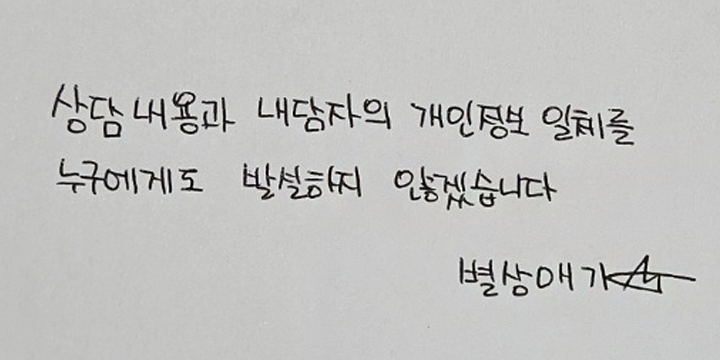 상담내용과 내담자의 개인정보 일체를
누구에게도 발설하지 않겠습니다
별상애가